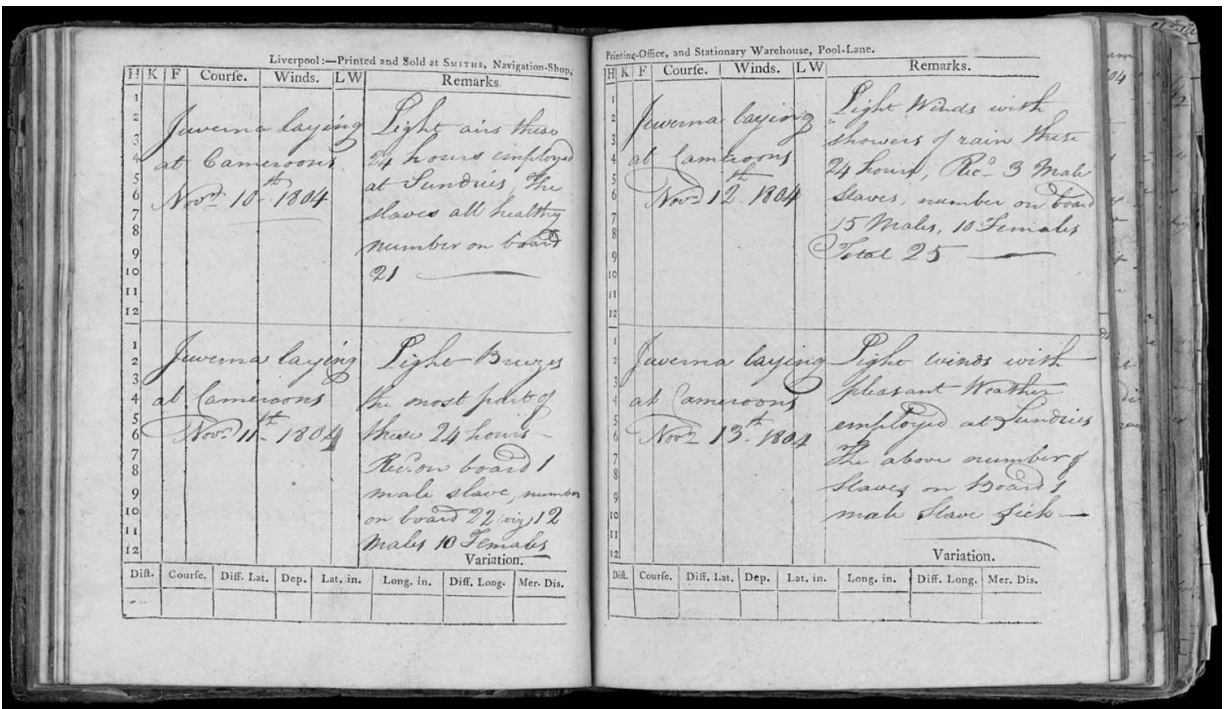 Liverpool:—Printed and Sold at SMITHS, Navigation-Shop,
H K F Courſe. Winds. L W Remarks
1
2
3
4
5
6
7
8
9
10
11
12
Juverna laying
at Cameroons
Novr 10th 1804
Light airs these
24 hours employed
at Sundries, The
slaves all healthy
number on board
21
1
2
3
4
5
6
7
8
9
10
11
12
Juverna laying
at Cameroons
Novr 11th 1804
Light Breezes
the most part of
these 24 hours—
Recd on board 1
male slave, number
on board 22 (viz) 12
Males 10 Females
Variation.
Diſt. Courſe. Diff. Lat. Dep. Lat. in. Long. in. Diff. Long. Mer. Dis.
Printing-Office, and Stationary Warehouse, Pool-Lane.
H K F Courſe. Winds. L W Remarks.
1
2
3
4
5
6
7
8
9
10
11
12
Juverna laying
at Cameroons
Novr 12th 1804
Light Winds with
showers of rain these
24 hours, Recd 3 Male
slaves, number on board
15 Males, 10 Females
Total 25
1
2
3
4
5
6
7
8
9
10
11
12
Juverna laying
at Cameroons
Novr 13th 1804
Light winds with
pleasant Weather
employed at Sundries
The above number of
Slaves on Board 1
male Slave sick—
Variation.
Diſt. Courſe. Diff. Lat. Dep. Lat. in. Long. in. Diff. Long. Mer. Dis.